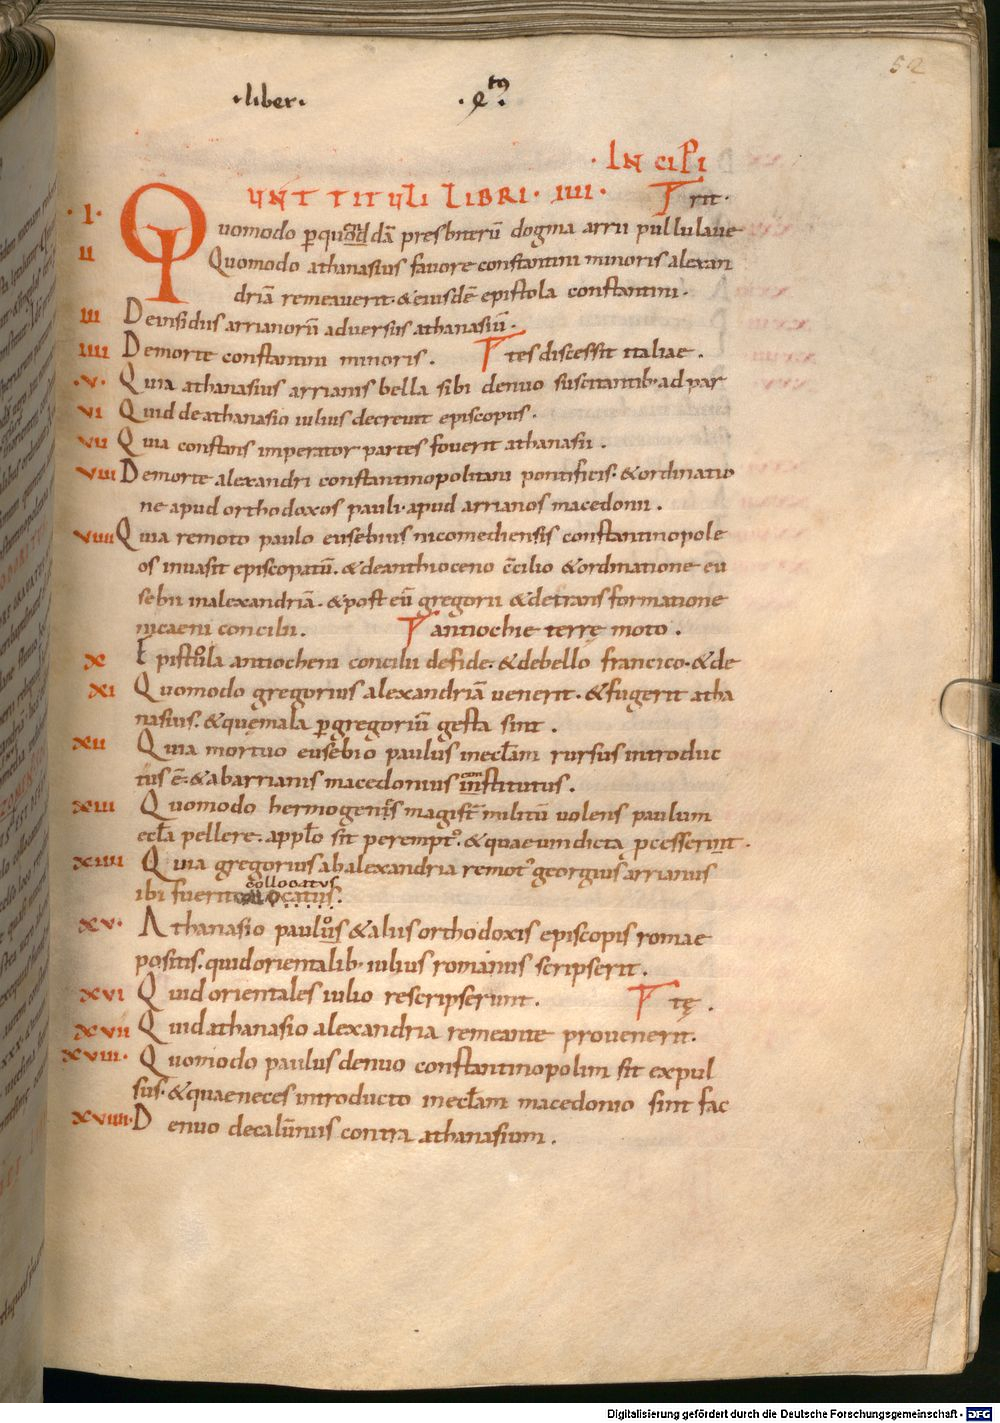 52
·liber· ·q̊tꝰ·
·INCIPI
UNT TITULI LIBRI· IIII·
rit·
·I· Quomodo ꝑquoddā presbiterū dogma arrii pullulaue
II Quomodo athanasius fauore constantini minoris alexan
driā remeauerit· & eiusdē epistola constantini·
III De insidiis arrianorū aduersus athanasiū·
IIII De morte constantini minoris. tes discessit italiae.
·V· Quia athanasius arrianis bella sibi denuo suscitantib· ad par
VI Quid de athanasio iulius decreuit episcopus.
VII Quia constans imperator partes fouerit athanasii.
VIII De morte alexandri constantinopolitani pontificis· & ordinatio
ne apud orthodoxos pauli· apud arrianos macedonii.
VIIII Quia remoto paulo eusebius nicomediensis constantinopole
os inuasit episcopatū. & de anthioceno c̄cilio & ordinatione eu
sebii in alexandriā· & post eū gregorii & de transformatione
nicaeni concilii. antiochie terrę moto.
X Epistola antiocheni concilii de fide· & de bello francico· & de
XI Quomodo gregorius alexandriā uenerit· & fugerit atha
nasius· & quę mala ꝑ gregoriū gesta sint.
XII Quia mortuo eusebio paulus in eccƚam rursus introduc
tus ē· & ab arrianis macedonius institutus.
con
XIII Quomodo hermogenis magisƚ militū uolens paulum
eccƚa pellere· a pplo sit perempt᷒· & quae uindicta pcesserint.
XIIII Quia gregorius ab alexandria remot᷒ georgius arrianus
collocatus
ibi fuerit collocatus.
XV· Athanasio paulo & aliis orthodoxis episcopis romae
positis· quid orientalib· iulius romanus scripserit.
XVI Quid orientales iulio rescripserunt. tę.
XVII Quid athanasio alexandria remeante prouenerit·
XVIII· Quomodo paulus denuo constantinopolim sit expul
sus· & quae neces introducto in eccƚam macedonio sint fac
XVIIII· Denuo de calūniis contra athanasium.
Digitalisierung gefördert durch die Deutsche Forschungsgemeinschaft - DFG